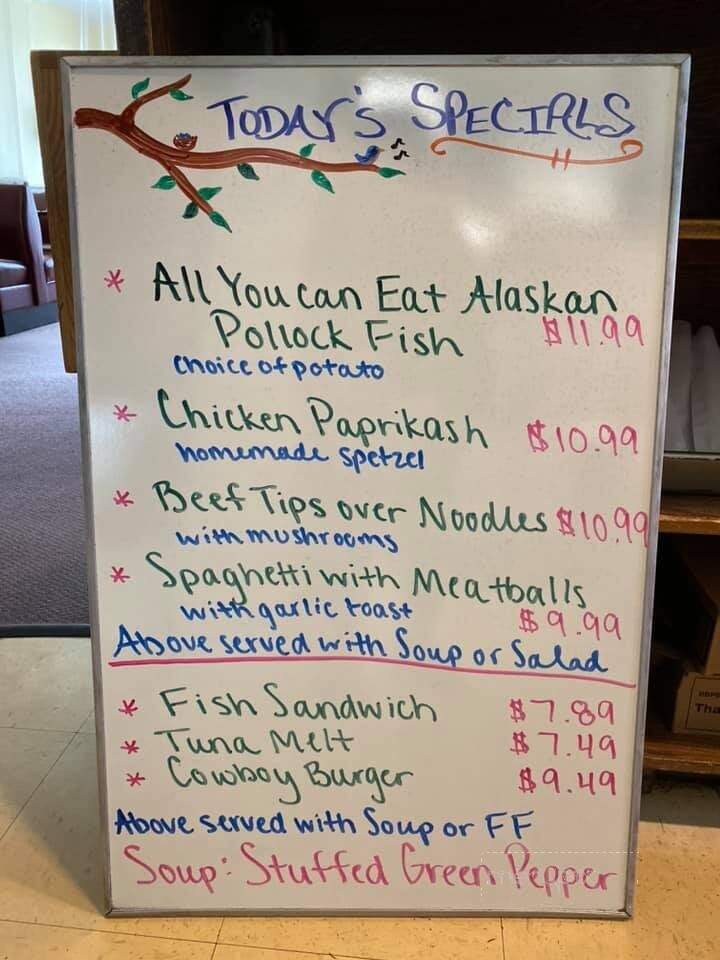 TODAY'S SPECIALS
* All You can Eat Alaskan
Pollock Fish $11.99
choice of potato
* Chicken Paprikash $10.99
homemade spetzel
* Beef Tips over Noodles $10.99
with mushrooms
* Spaghetti with Meatballs
with garlic toast $9.99
Above served with Soup or Salad
* Fish Sandwich $7.89
* Tuna Melt $7.49
* Cowboy Burger $9.49
Above served with Soup or FF
Soup: Stuffed Green Pepper
Tha